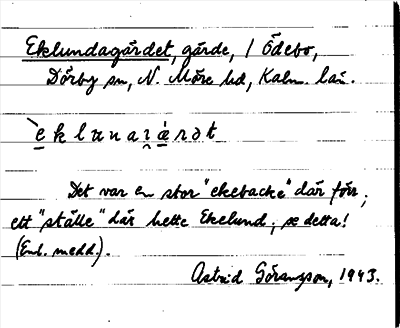 Eklundagärdet, gärde, i Ödebo,
Dörby sn, N. Möre hd, Kalm. län.
Det var en stor "ekebacke" där förr;
ett "ställe" där hette Ekelund, se detta!
(Enl. medd.).
Astrid Göransson, 1943.